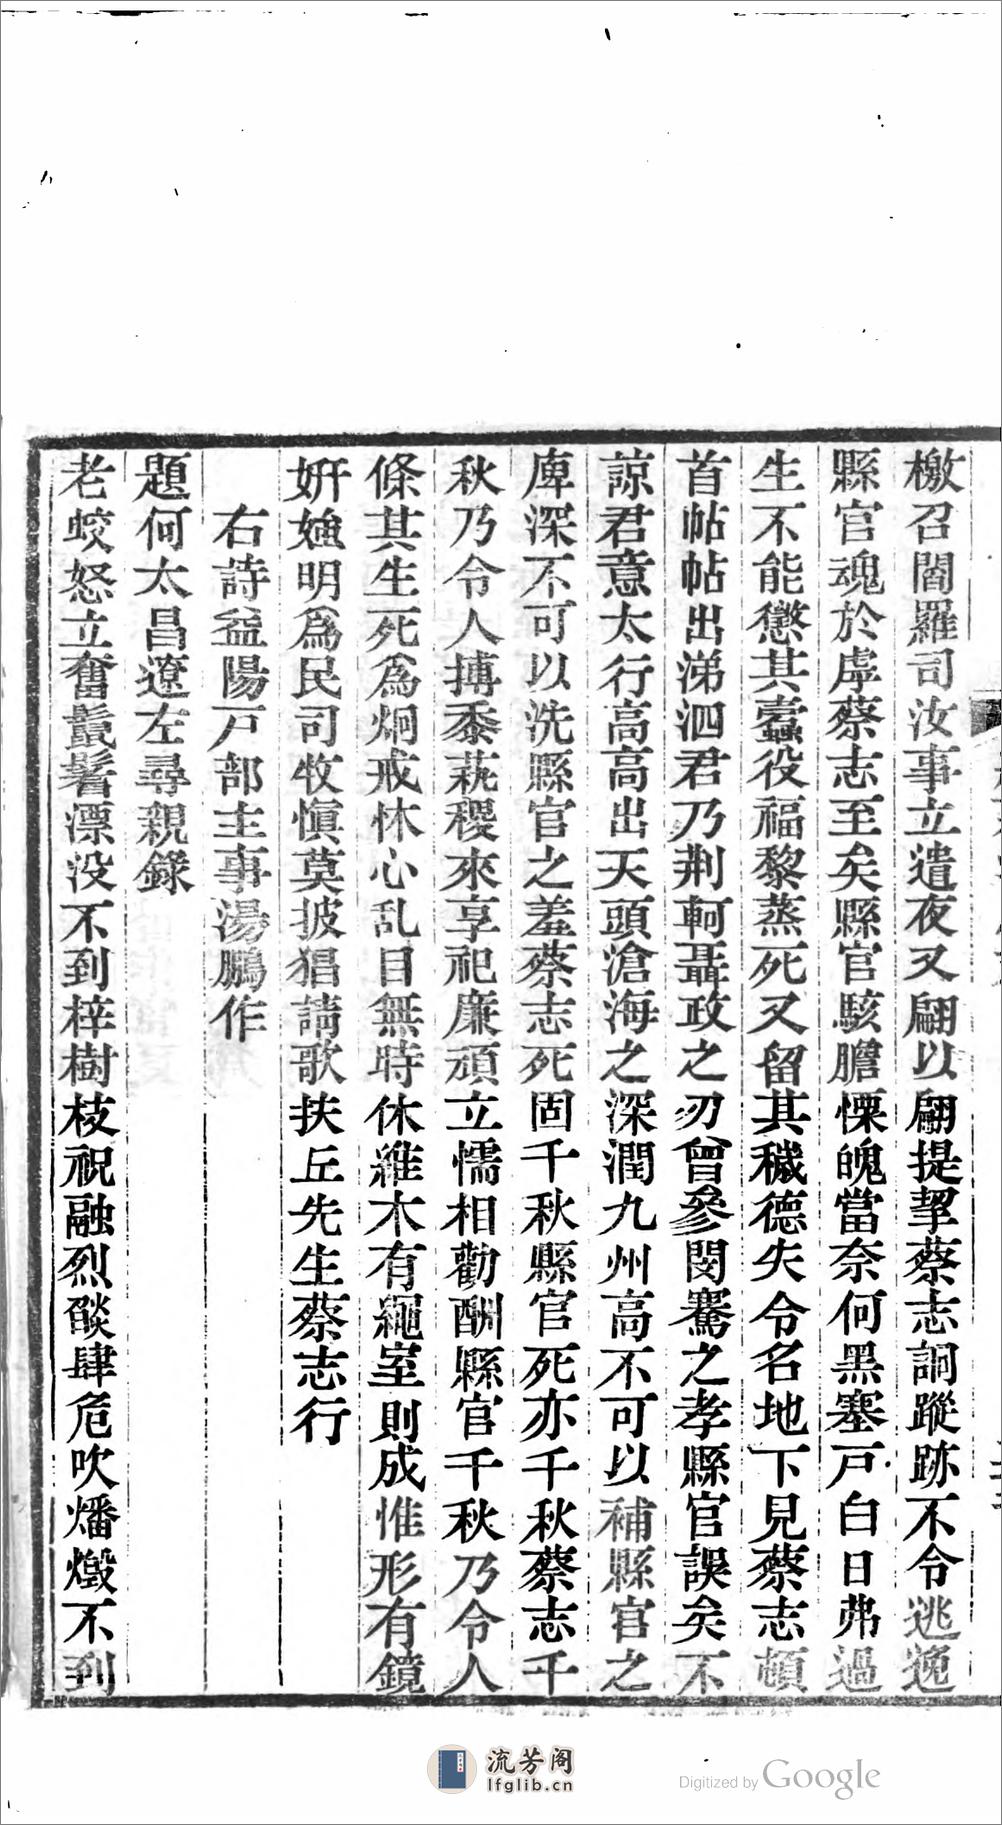 檄召閻羅司汝事立遣夜叉翩以翩提挈蔡志詗蹤跡不令逃逸
縣官魂於虖蔡志至矣縣官駭膽慄魄當奈何黑塞戸白日弗過
生不能懲其蠹役福黎蒸死又留其穢德失令名地下見蔡志頓
首帖帖出涕泗君乃荆軻聶政之刃曾參閔騫之孝縣官誤矣不
諒君意太行高高出天頭滄海之深潤九州高不可以補縣官之
庳深不可以洗縣官之羞蔡志死固千秋縣官死亦千秋蔡志千
秋乃令人搏黍蓺稷來享祀廉頑立懦相勸酬縣官千秋乃令人
條其生死爲炯戒怵心乱目無時休維木有繩室則成惟形有鏡
妍媸明爲民司牧愼莫披猖請歌扶丘先生蔡志行
右詩益陽戸部主事湯鵬作
題何太昌遼左尋親錄
老蛟怒立奮鬣鬐漂没不到梓樹枝祝融烈燄肆危吹燔燬不到
流芳阁
lfglib.cn
Digitized by Google